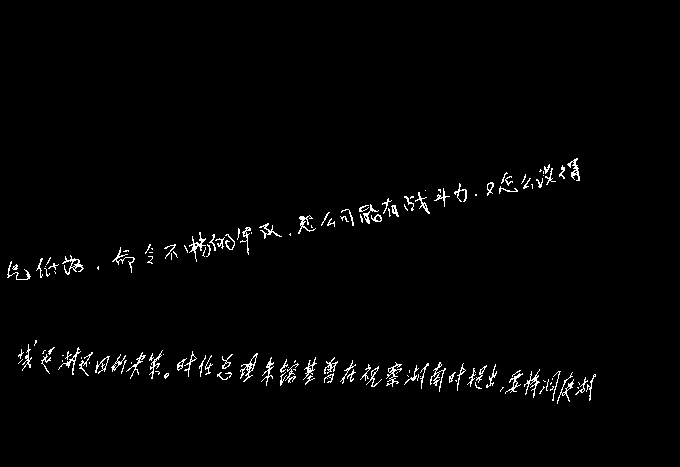 气低落，命令不畅的军队，怎么可能有战斗力，又怎么没得
城退湖还田的决策。时任总理朱镕基曾在视察湖南时提出，要将洞庭湖